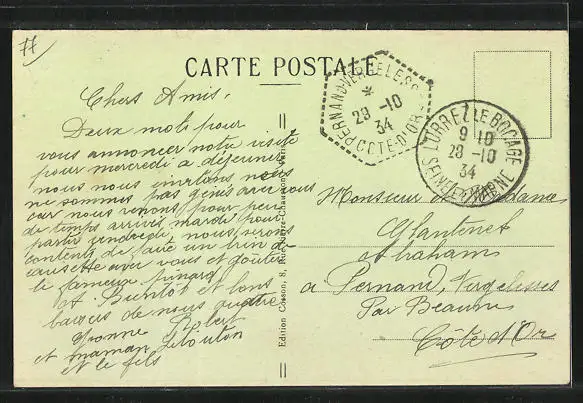 77
CARTE POSTALE
Chers Amis.
Deux mots pour
vous annoncer notre visite
pour mercredi a déjeuner
nous nous invitons nous
ne sommes pas génés avec vous
car nous venons pour peu
de temps arrivés mardi pour
partir vendredi, nous serons
contents de faire un brin de
causette avec vous et goûter
le fameux pinard
A Bientôt et bons
baisers de nous quatre
Yvonne
et maman
et le fils
Edition Cosson, 8, Rue
PERNAND-VERGELESSES
*
29-10
34
COTE-D'OR
LORREZ LE BOCAGE
9 10
28-10
34
SEINE ET MARNE
Monsieur et Madame
Glantenet
Abraham
a Pernand, Vergelesses
Par Beaune
Côte d'Or